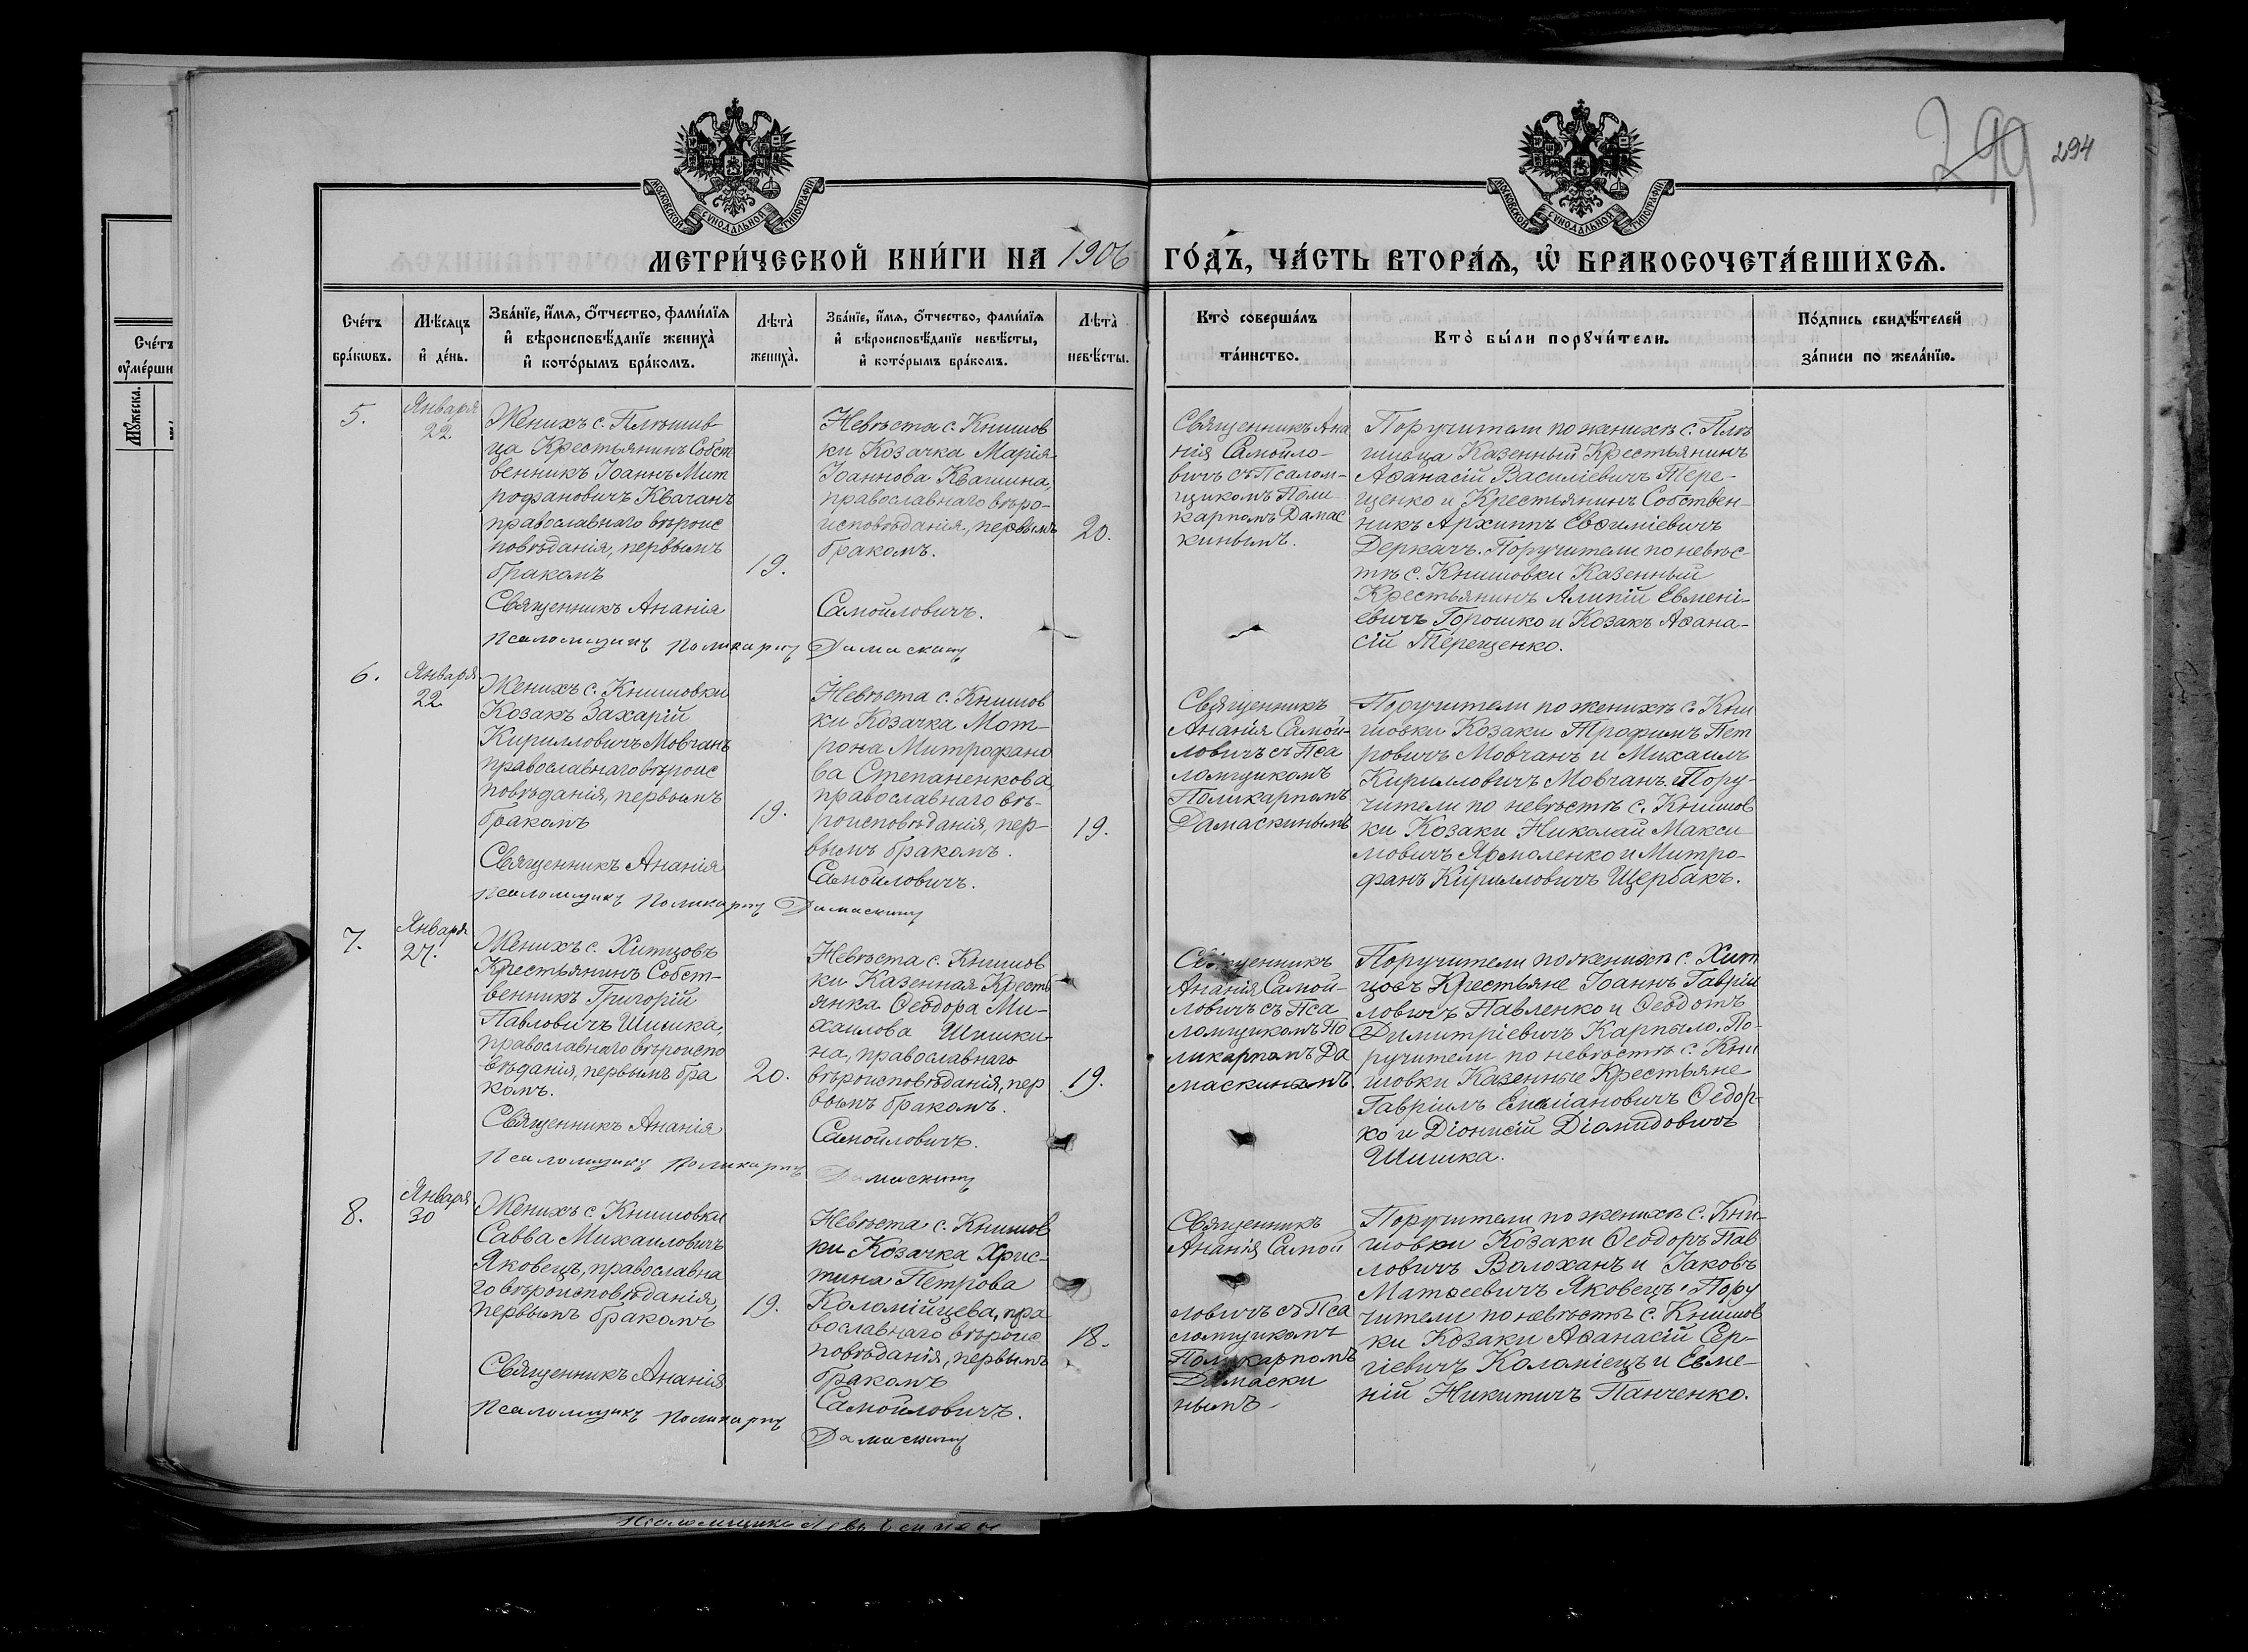 299 294
МОСКОВСКОЙ СУНОДАЛЬНОЙ ТИПОГРАФІИ
МОСКОВСКОЙ СУНОДАЛЬНОЙ ТИПОГРАФІИ
МЕТРИ́ЧЕСКОЙ КНИ́ГИ НА 1906 ГО́ДЪ, ЧА́СТЬ ВТОРА́Я, Ѡ҆ БРАКОСОЧЕТА́ВШИХСЯ.
Сче́тъ
бра́кѡвъ.
Мѣ́сяцъ
и҆ де́нь.
Зва́нїе, и҆́мя, ѻ҆́тчество, фами́лїя
и҆ вѣроисповѣ́данїе жениха̀
и҆ кото́рымъ бра́комъ.
Лѣта̀
жениха̀.
Зва́нїе, и҆́мя, ѻ҆́тчество, фами́лїя
и҆ вѣроисповѣ́данїе невѣ́сты,
и҆ кото́рымъ бра́комъ.
Лѣта̀
невѣ́сты.
Кто̀ соверша́лъ
та́инство.
Кто̀ бы́ли порꙋчи́тели.
По́дпись свидѣ́телей
за́писи по жела́нїю.
Сче́тъ
ᲂу҆ме́рши
Мꙋ́жеска.
5.
Января
22.
Женихъ с. Плѣшив
ца Крестьянинъ Собст
венникъ Іоаннъ Мит
рофановичъ Квачанъ
православнаго вѣроис
повѣданія, первымъ
бракомъ
19.
Невѣста с. Книшов
ки Козачка Марія
Іоаннова Квашина,
православнаго вѣро-
исповѣданія, первымъ
бракомъ.
20.
Священникъ Анания
Самойловичъ.
Псаломщикъ Поликарпъ Дамаскинъ
Священникъ Ана
нія Самойло-
вичъ съ Псалом-
щикомъ Поли
карпомъ Дамас
кинымъ.
Поручители по женихѣ с. Плѣ
шивца Казенный Крестьянинъ
Аѳанасій Василіевичъ Тере-
щенко и Крестьянинъ Собствен-
никъ Архиппъ Евѳиміевичъ
Деркачъ. Поручители по невѣс-
тѣ с. Книшовки Казенный
Крестьянинъ Алипій Евмені-
евичъ Горошко и Козакъ Аѳана-
сій Терещенко.
6.
Января
22.
Женихъ с. Книшовки
Козакъ Захарій
Кирилловичъ Мовчанъ
православнаго вѣроис
повѣданія, первымъ
бракомъ
19.
Невѣста с. Книшов
ки Козачка Мот-
рона Митрофано
ва Степаненкова,
православнаго вѣ-
роисповѣданія, пер-
вымъ бракомъ.
19.
Священникъ Ананія
Самойловичъ.
Псаломщикъ Поликарпъ Дамаскинъ
Священникъ
Ананія Самой-
ловичъ съ Пса
ломщикомъ
Поликарпомъ
Дамаскинымъ
Поручители по женихѣ с. Кни
шовки Козаки Трофимъ Пет
ровичъ Мовчанъ и Михаилъ
Кирилловичъ Мовчанъ. Пору-
чители по невѣстѣ с. Книшов
ки Козаки Николай Макси-
мовичъ Ярмоленко и Митро-
фанъ Кирилловичъ Щербакъ.
7.
Января
27.
Женихъ с. Хитцовъ
Крестьянинъ Собст-
венникъ Григорій
Павловичъ Шишка,
православнаго вѣроиспо
вѣданія, первымъ бра
комъ.
20.
Невѣста с. Книшов
ки Казенная Кресть
янка Ѳеодора Ми-
хаилова Шишки-
на, православнаго
вѣроисповѣданія, пер
вымъ бракомъ.
19.
Священникъ Ананія
Самойловичъ.
Псаломщикъ Поликарпъ Дамаскинъ
Священникъ
Ананія Самой-
ловичъ съ Пса
ломщикомъ По
ликарпомъ Да
маскинымъ
Поручители по женихѣ с. Хит
цовъ Крестьяне Іоаннъ Гавріи
ловичъ Павленко и Ѳеодотъ
Димитріевичъ Карпыло. По-
ручители по невѣстѣ с. Кни
шовки Казенные Крестьяне
Гавріилъ Емиліановичъ Ѳедор-
ко и Діонисій Діомидовичъ
Шишка.
8.
Января
30
Женихъ с. Книшовки
Савва Михаиловичъ
Яковецъ, православна
го вѣроисповѣданія,
первымъ бракомъ
19.
Невѣста с. Книшов
ки Козачка Хрис-
тина Петрова
Коломійцева, пра
вославнаго вѣроис
повѣданія, первымъ
бракомъ
18.
Священникъ Ананія
Самойловичъ.
Псаломщикъ Поликарпъ
Дамаскинъ
Священникъ
Ананія Самой
ловичъ съ Пса
ломщикомъ
Поликарпомъ
Дамаски
нымъ
Поручители по женихѣ с. Кни-
шовки Козаки Ѳеодоръ Пав
ловичъ Волоханъ и Іаковъ
Матѳеевичъ Яковецъ. Пору
чители по невѣстѣ с. Книшов
ки Козаки Аѳанасій Сер-
гіевичъ Коломіецъ и Евме-
ній Никитичъ Панченко.